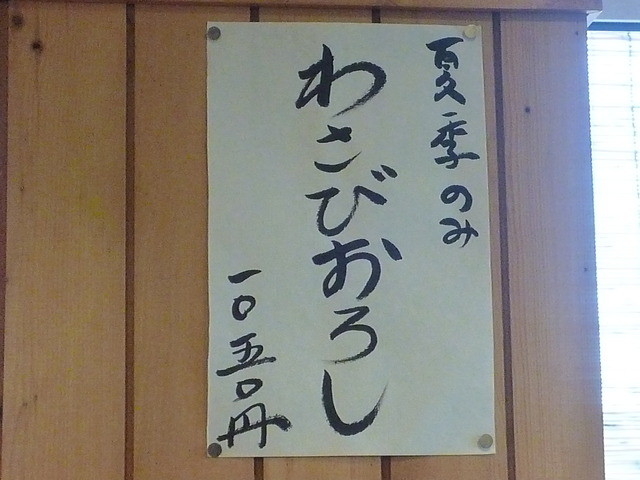 夏季のみ
わさびおろし
一〇五〇円